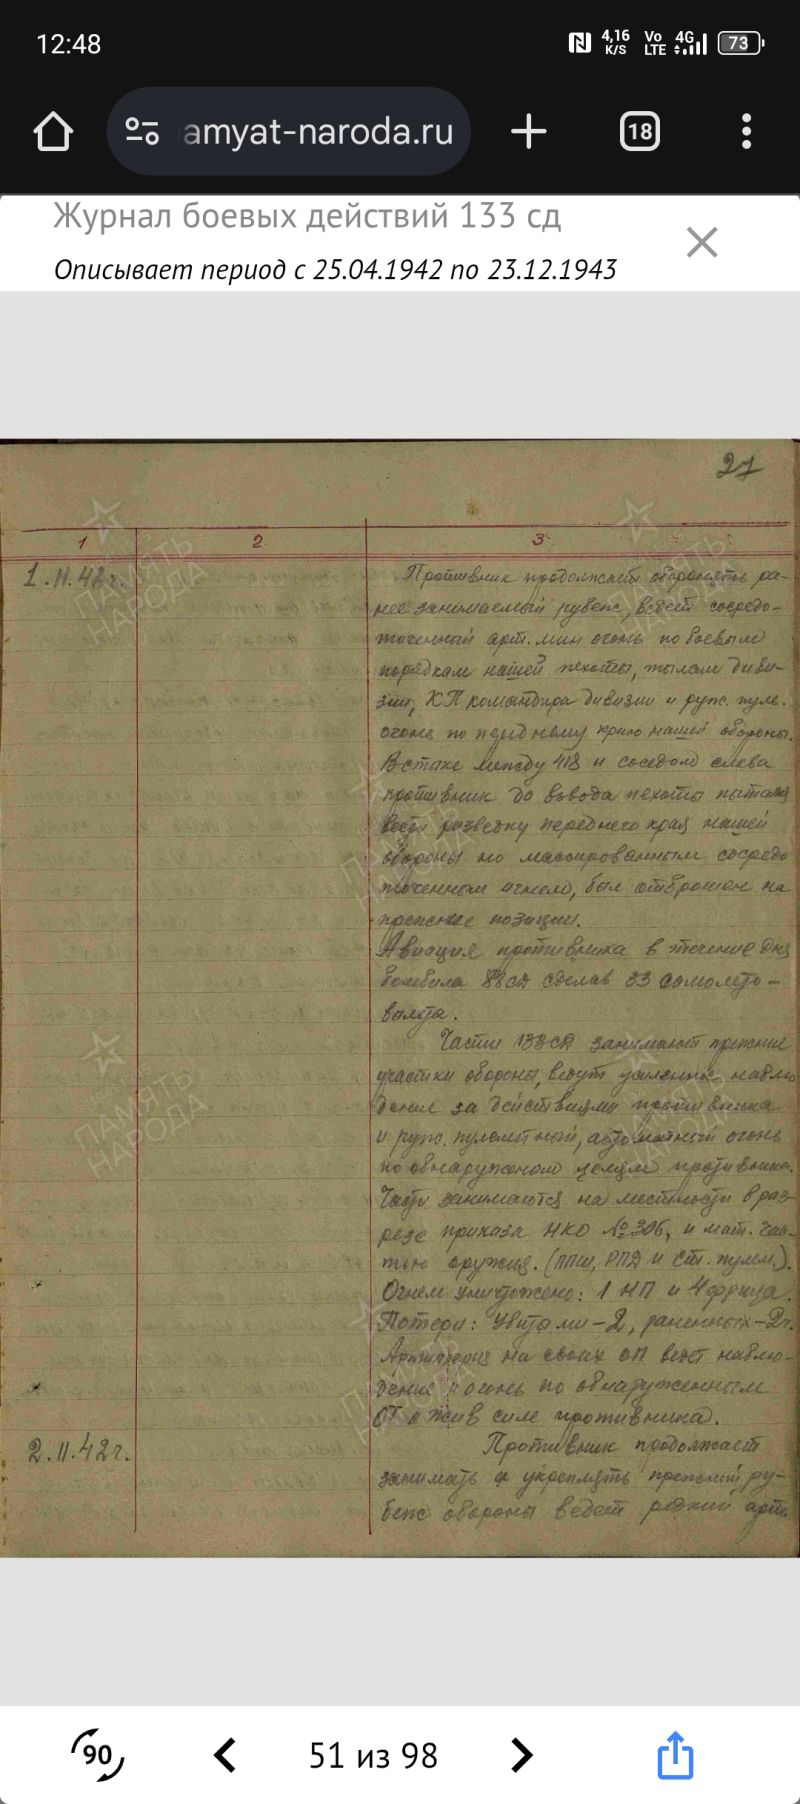 12:48
4,16 K/S
Vo LTE
4G
73
amyat-naroda.ru
18
Журнал боевых действий 133 сд
Описывает период с 25.04.1942 по 23.12.1943
27
1 2 3
1.11.42г. Противник продолжает оборонять ра-
нее занимаемый рубеж, ведет сосредо-
точенный арт. мин огонь по боевым
порядкам нашей пехоты, тылам диви-
зии, КП командира дивизии и руж. пуль.
огонь по переднему краю нашей обороны.
В стыке между 418 и соседом слева
противник до взвода пехоты пытался
вести разведку переднего края нашей
обороны но массированным сосредо
точенным огнем, был отброшен на
прежние позиции.
Авиация противника в течение дня
бомбила 88сд сделав 83 самолето-
вылета.
Части 133СД занимают прежние
участки обороны, ведут усиленное наблю
дение за действиями противника
и руж. пулеметный, автоматный огонь
по обнаруженом целям противника.
Части занимаются на местности в раз-
резе приказа НКО № 306, и мат. час-
тью оружия. (ППШ, РПД и ст. пулем.).
Огнем уничтожено: 1 НП и 4 фрица.
Потери: убитыми-2, раненных-2ч.
Артиллерия на своих ОП ведет наблю-
дение и огонь по обнаруженным
ОТ и жив силе противника.
2.11.42г. Противник продолжает
занимать и укреплять прежний ру-
беж обороны ведет редкий арт.
ПАМЯТЬ НАРОДА
ПАМЯТЬ НАРОДА
ПАМЯТЬ НАРОДА
ПАМЯТЬ НАРОДА
ПАМЯТЬ НАРОДА
ПАМЯТЬ НАРОДА
90
51 из 98